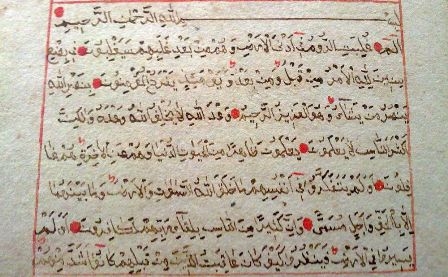 بسم الله الرحمن الرحيم
الم غلبت الروم في أدنى الأرض وهم من بعد غلبهم سيغلبون في بضع
سنين لله الأمر من قبل ومن بعد ويومئذ يفرح المؤمنون بنصر الله
ينصر من يشاء وهو العزيز الرحيم وعد الله لا يخلف الله وعده ولكن
أكثر الناس لا يعلمون يعلمون ظاهرا من الحيوة الدنيا وهم عن الآخرة هم غا
فلون أولم يتفكروا في أنفسهم ما خلق الله السموات والأرض وما بينهما
إلا بالحق وأجل مسمى وإن كثيرا من الناس بلقاء ربهم لكافرون أولم
يسيروا في الأرض فينظروا كيف كان عاقبة الذين من قبلهم كانوا أشد منهم